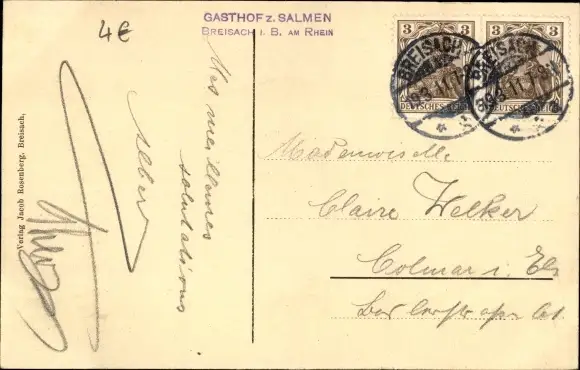 4€
GASTHOF z. SALMEN
BREISACH i. B. AM RHEIN
3 3
3 3
BREISACH
BREISACH
DEUTSCHES REICH
DEUTSCHES REICH
Mes meilleures
salutations
Albert
Mademoiselle
Claire Welker
Colmar i. Els
Verlag Jacob Rosenberg, Breisach,